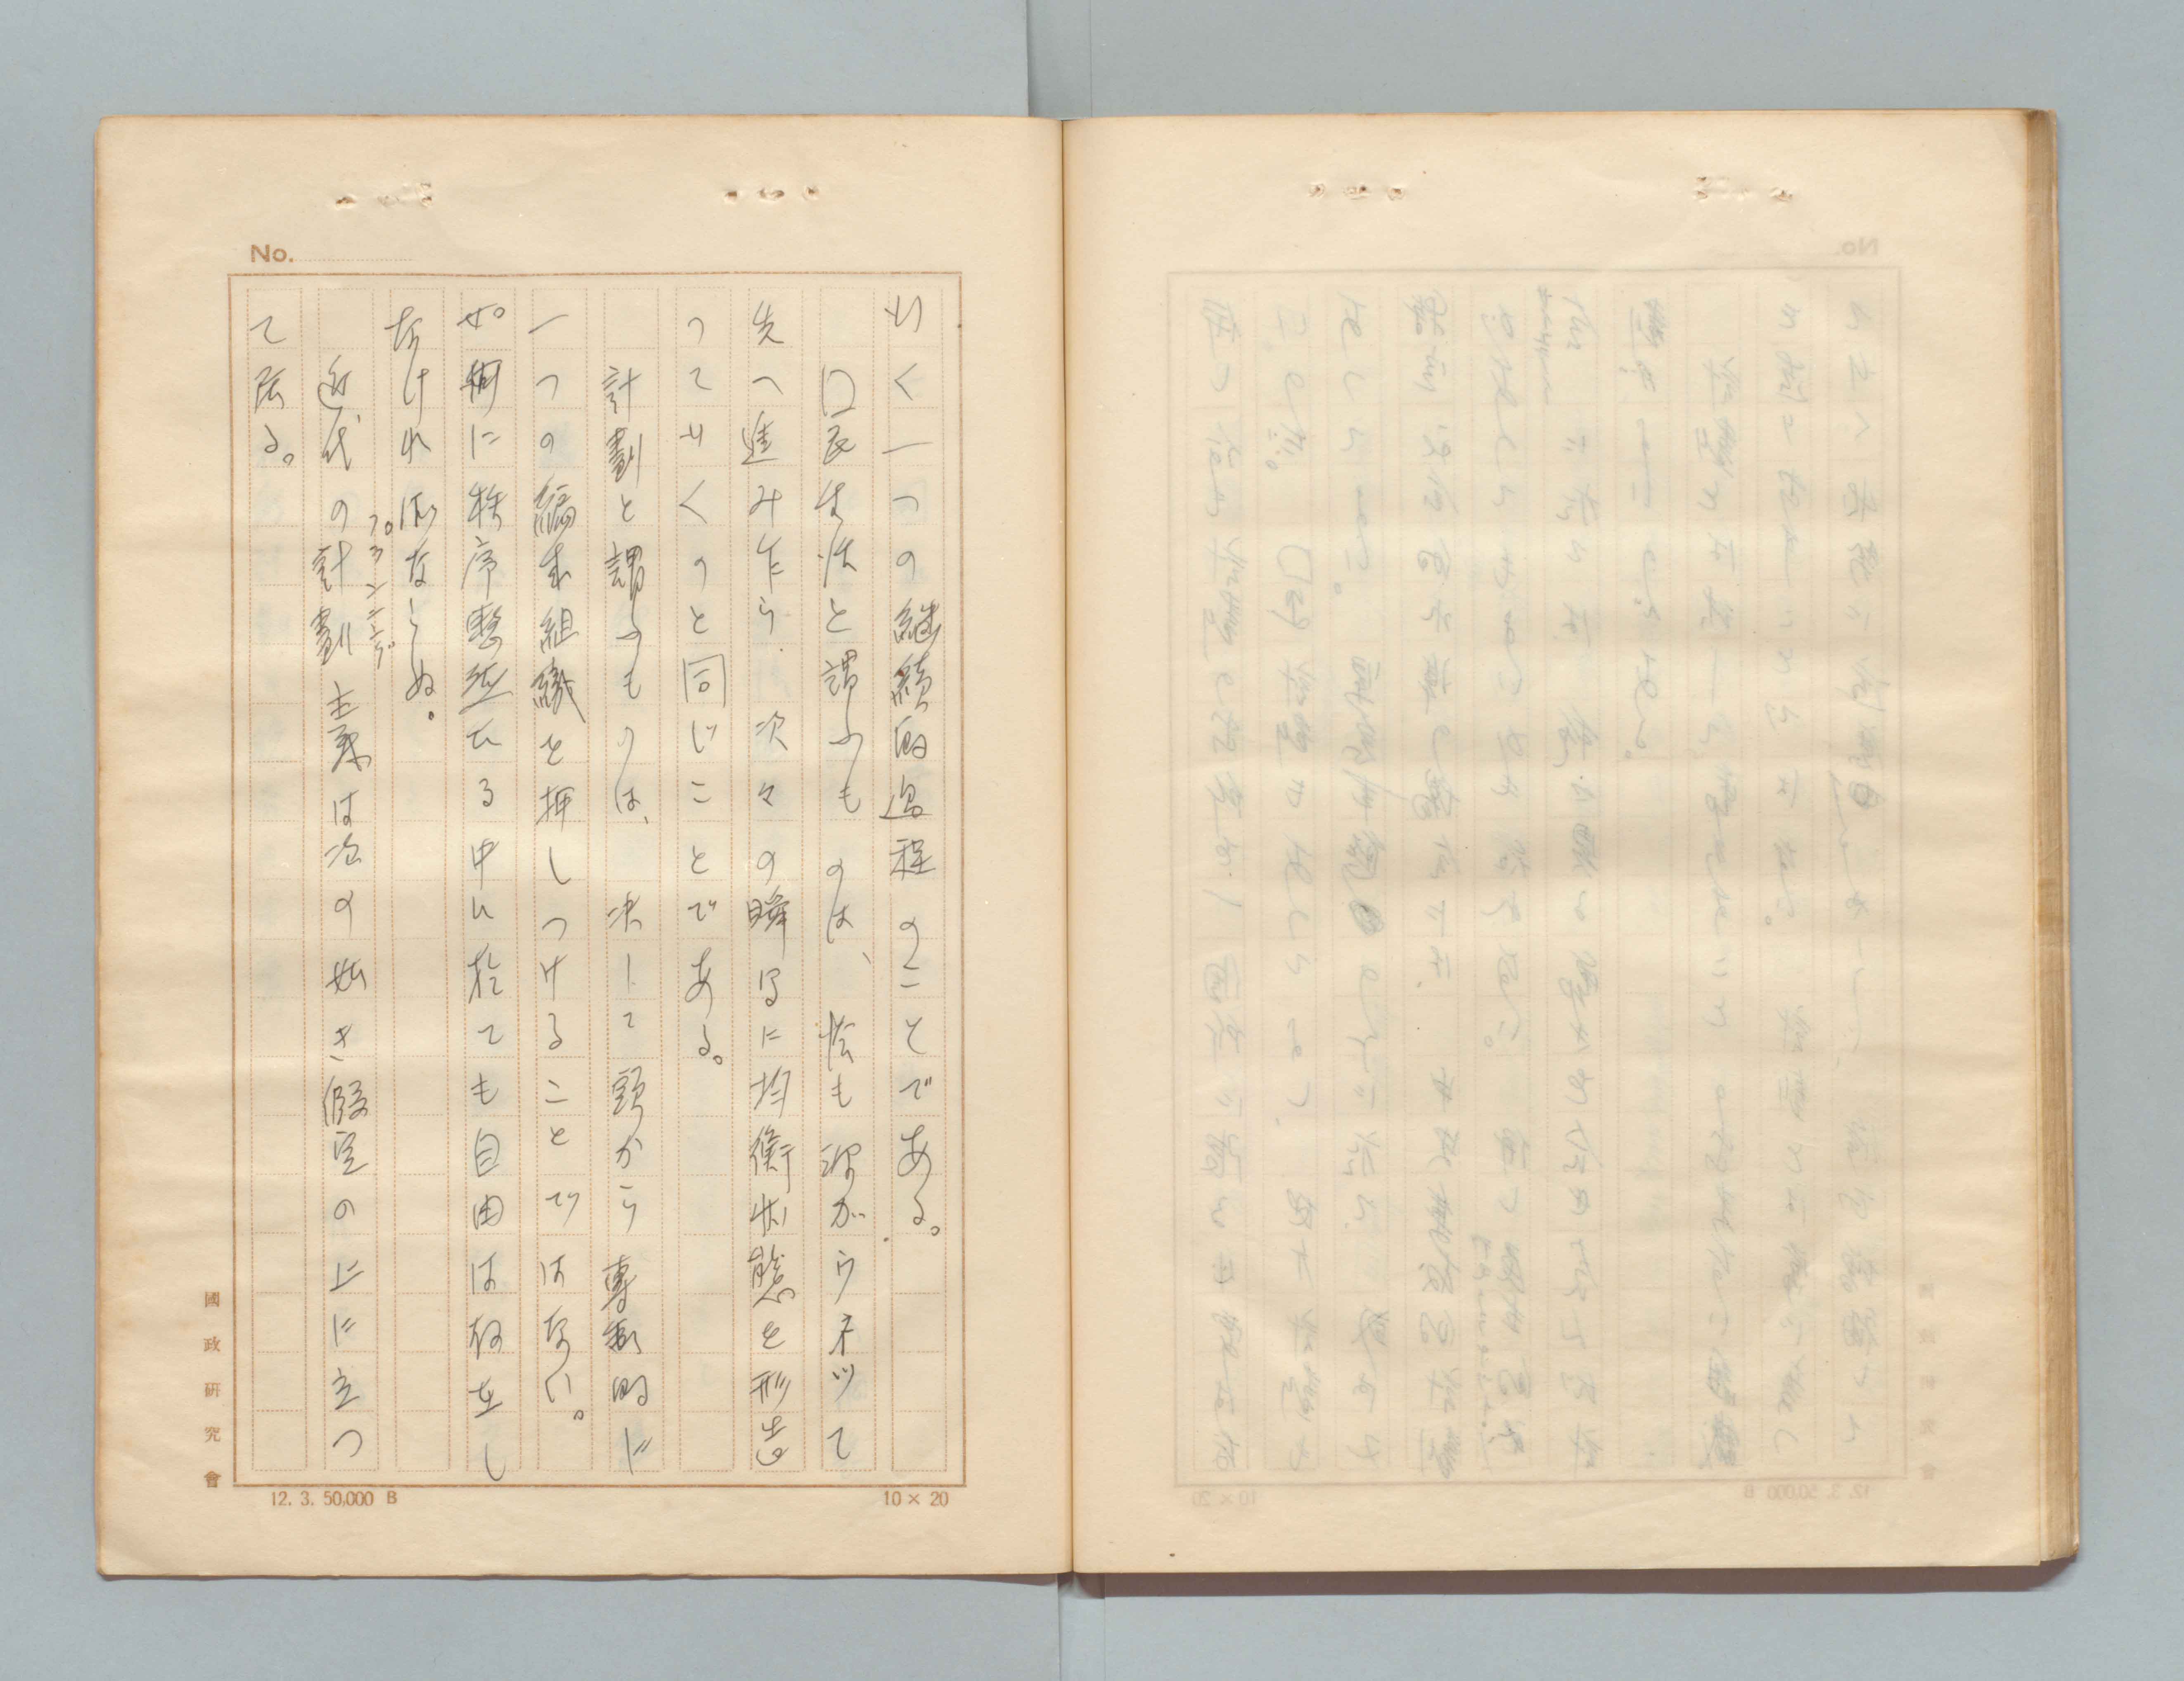 No.
いく一つの継續的過程のことである。
国民生活と謂ふものは、恰も波がウネツて
先へ進み乍ら 次々の瞬間に均衡状態を形造
つてゆくのと同じことである。
計劃と謂ふものは、決して頭から專制的に
一つの編成組織を押しつけることではない。
如何に秩序整然たる中に於ても自由は存在し
なければならぬ。
プランニング
近代の計劃主義は次の如き假定の上に立つ
て居る。
國政研究會
12. 3. 50,000 B
10×20